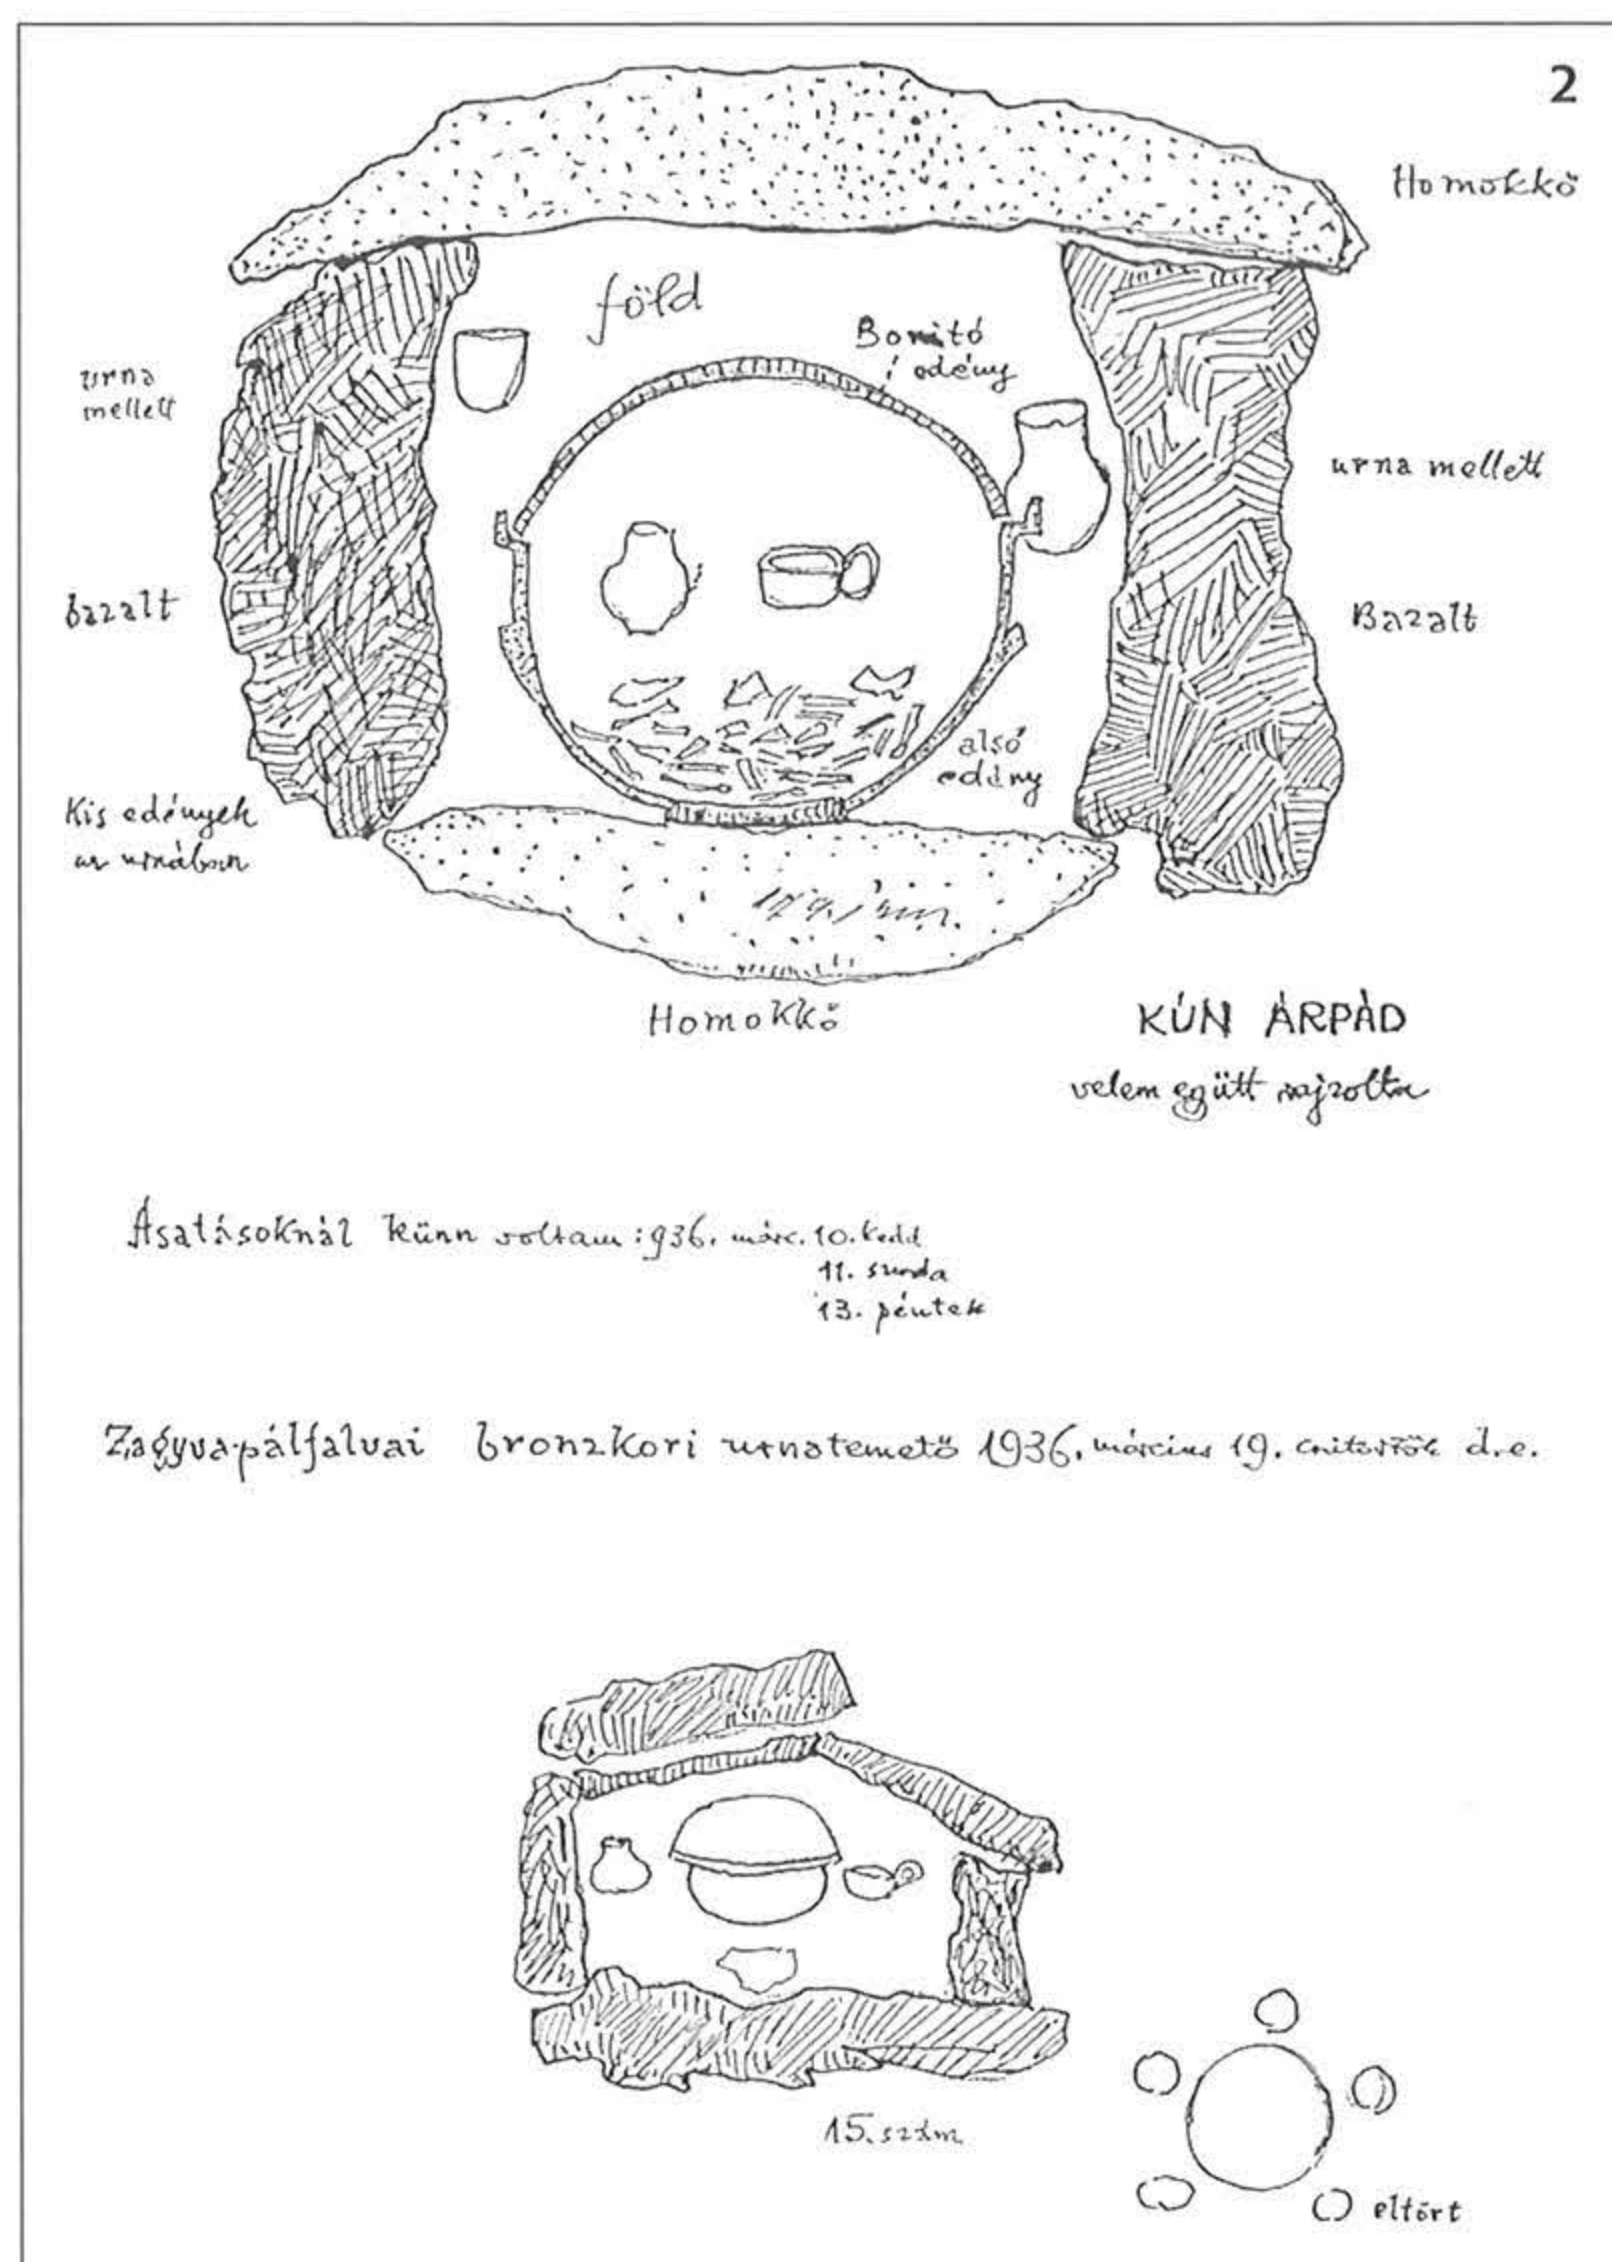 2
Homokkő
föld
Borító
edény
urna
mellett
urna mellett
bazalt
Bazalt
alsó
edény
Kis edények
az urnában
Homokkő
KÚN ÁRPÁD
velem együtt rajzolta
Ásatásoknál künn voltam: 936. márc. 10. kedd
11. szerda
13. péntek
Zagyva-pálfalvai bronzkori urnatemető 1936. március 19. csütörtök d.e.
15. szám
eltört